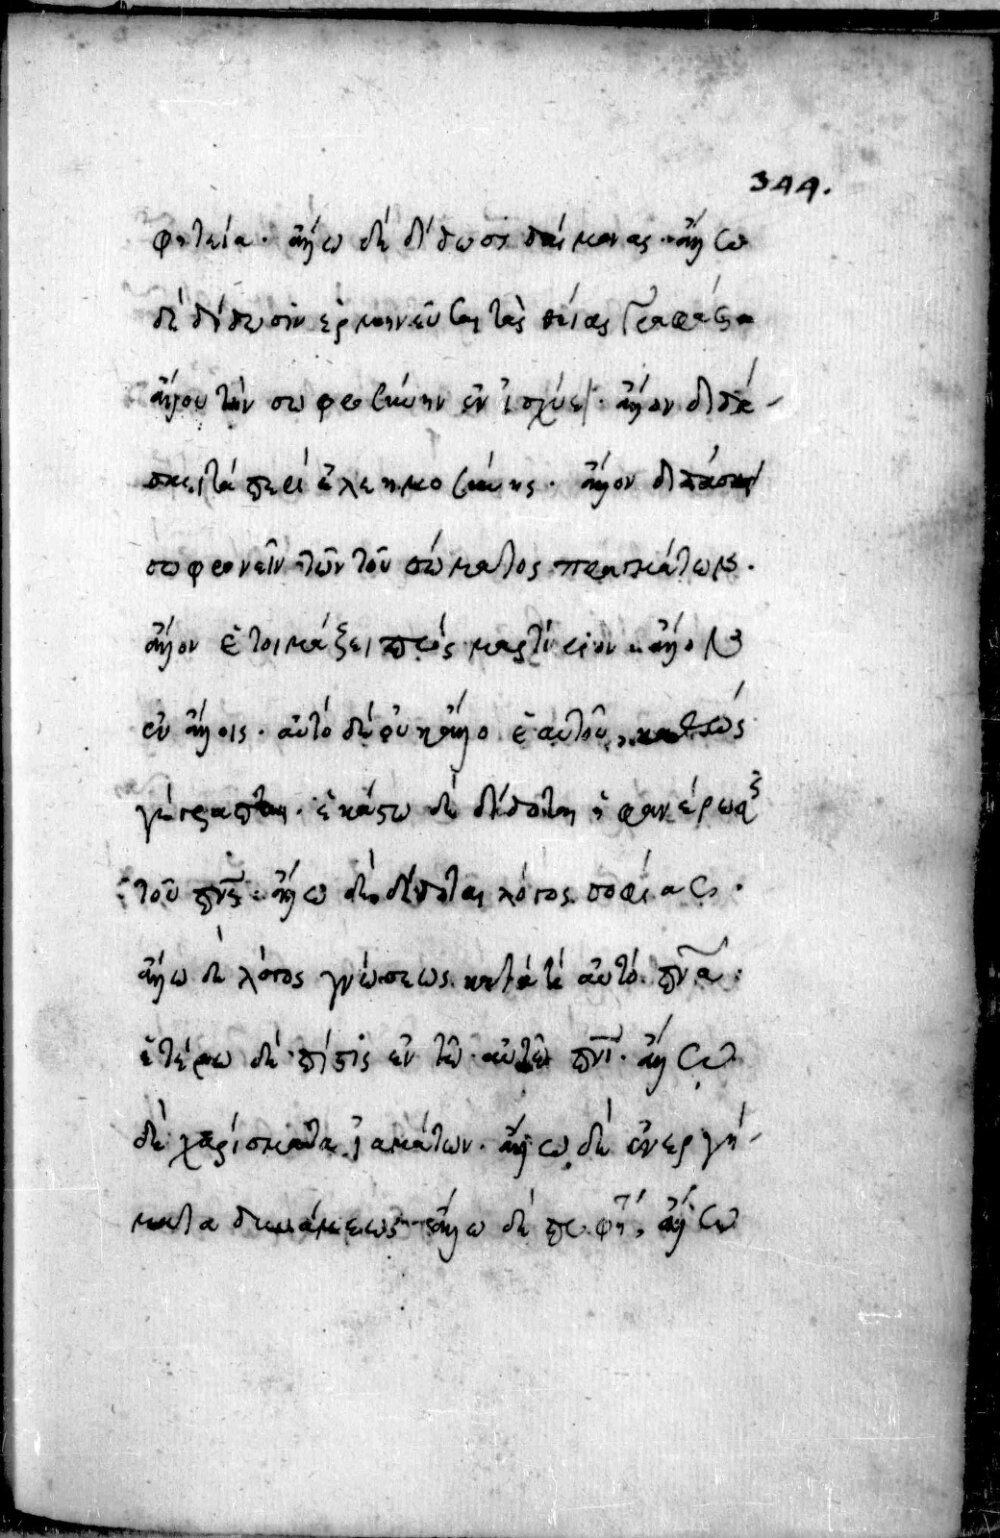 344.
φητεία. ἄλλω δὲ δίδωσι δαίμονας. ἄλλω
δὲ δίδωσιν ἑρμηνεῦσαι τὰς θείας γραφάς.
ἄλλου τὴν σωφροσύνην ἐνισχύει. ἄλλον διδά-
σκει τὰ περὶ ἐλεημοσύνης. ἄλλον διδάσκει
σωφρονεῖν τῶν τοῦ σώματος πραγμάτων.
ἄλλον ἑτοιμάζει πρὸς μαρτύριον. ἄλλο
ἐν ἄλλοις. αὐτὸ δὲ οὐκ ἄλλο ἑαυτοῦ, καθὼς
γέγραπται. ἑκάστω δὲ δίδοται ἡ φανέρωσ
τοῦ πνς. ἄλλω δὲ δίδοται λόγος σοφίας.
ἄλλω δὲ λόγος γνώσεως κατὰ τὸ αὐτὸ πνα.
ἑτέρω δὲ πίστις ἐν τῶ αὐτῶ πνι. ἄλλω
δὲ χαρίσματα ἰαμάτων. ἄλλω δὲ ἐνεργή-
ματα δυνάμεως. ἄλλω δὲ προφη, ἄλλω